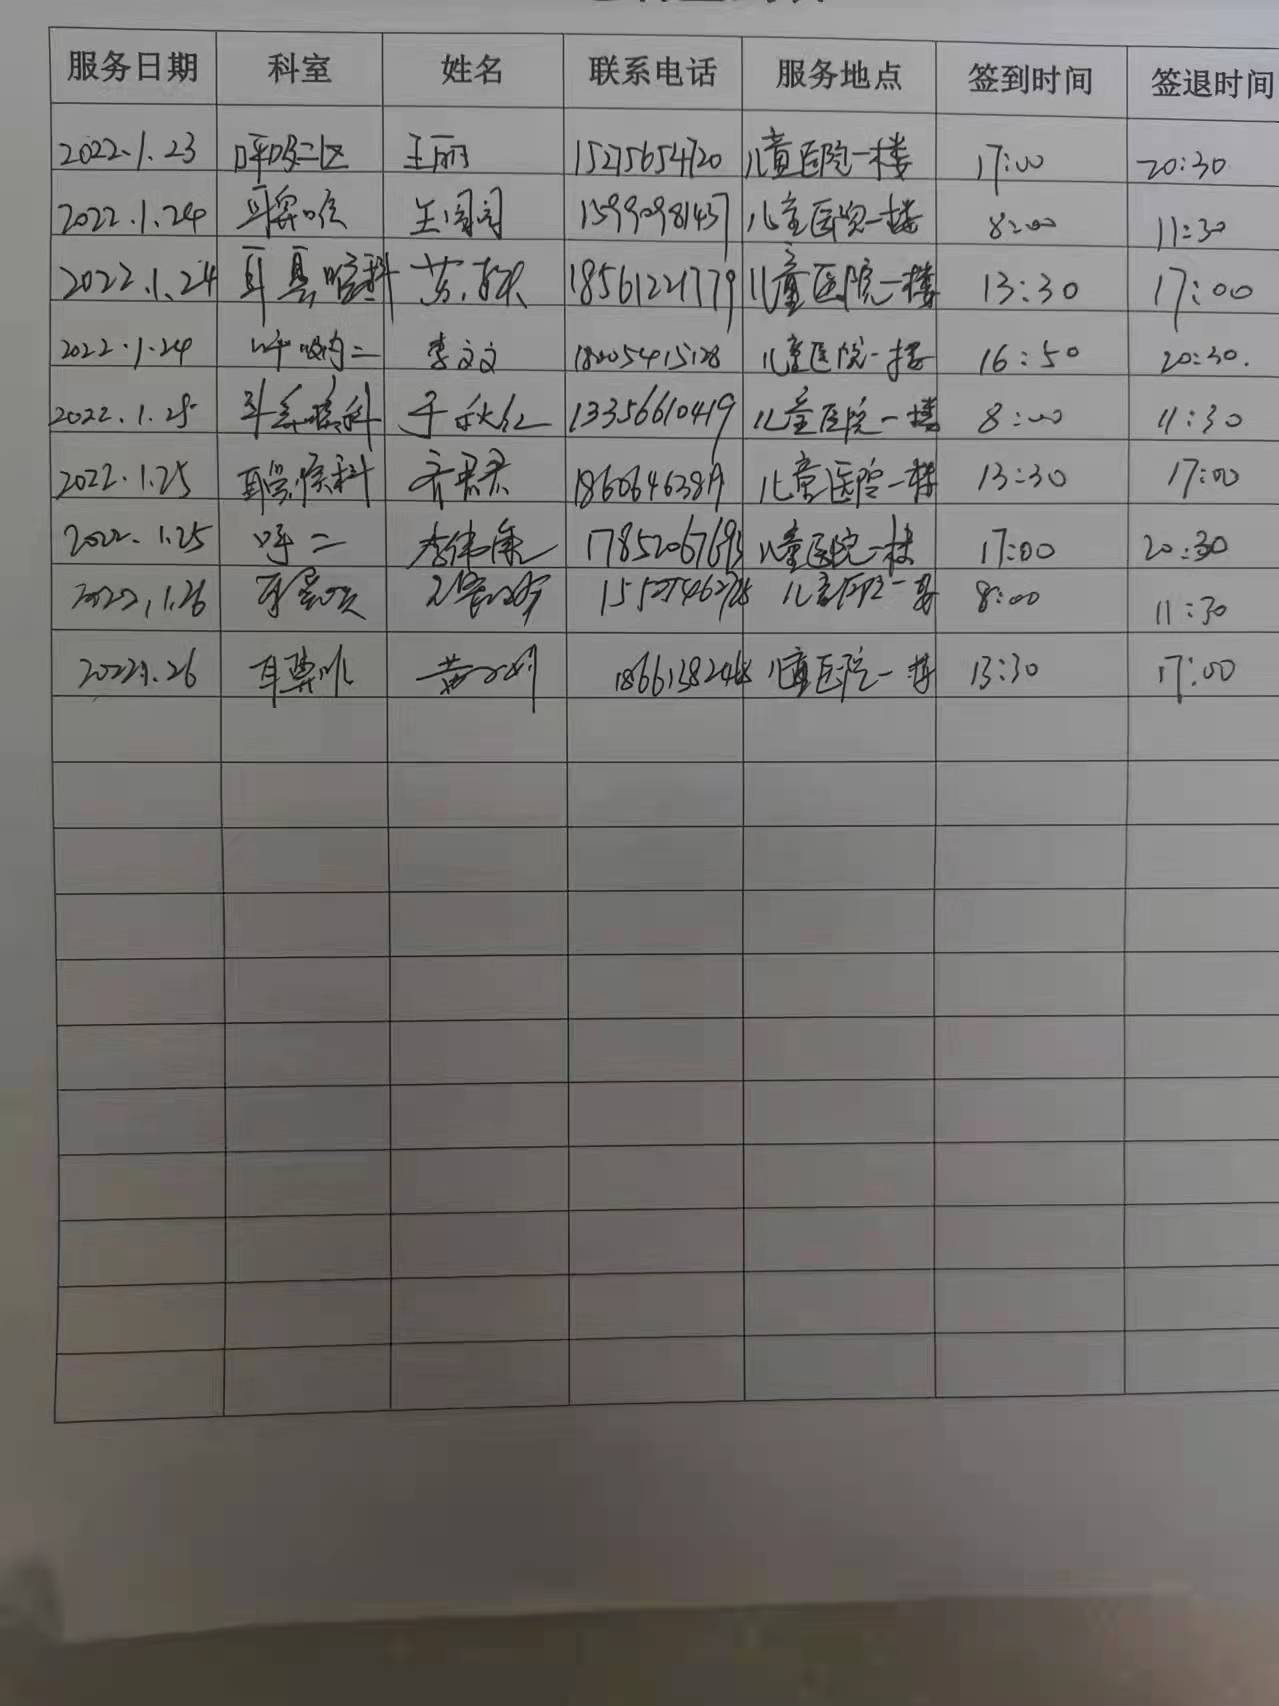 服务日期 科室 姓名 联系电话 服务地点 签到时间 签退时间
2022.1.23 呼吸二区 王丽 15275654720 儿童医院一楼 17:00 20:30
2022.1.24 耳鼻喉 王闺闺 15990981437 儿童医院一楼 8:00 11:30
2022.1.24 耳鼻喉科 18561221779 儿童医院一楼 13:30 17:00
2022.1.24 呼吸内二 李文文 18205415128 儿童医院一楼 16:50 20:30.
2022.1.25 耳鼻喉科 于秋红 13356610419 儿童医院一楼 8:00 11:30
2022.1.25 耳鼻喉科 齐君君 儿童医院一楼 13:30 17:00
2022.1.25 呼二 李伟康 儿童医院一楼 17:00 20:30
2022.1.26 耳鼻喉 儿童医院一楼 8:00 11:30
2022.1.26 耳鼻喉 儿童医院一楼 13:30 17:00